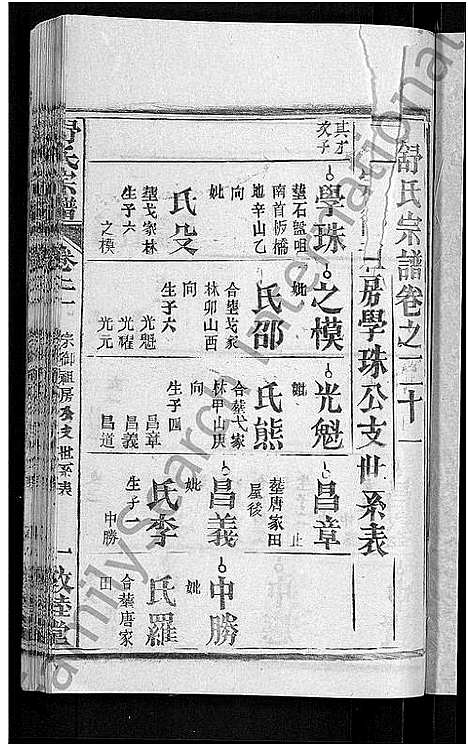 舒氏宗譜卷之二十一
房學珠公支世系表
其才
次子
學珠
塟石
南首板橋
地辛山乙
向
妣
氏殳
塟戈家林
生子六
之模
之模
妣
氏邵
合塟戈家
林卯山酉
向
生子六
光魁
光耀
光元
光魁
妣
氏熊
合塟戈家
林甲山庚
向
生子四
昌章
昌義
昌道
昌章
止
塟唐家田
屋後
昌義
妣
氏李
生子一
中勝
中勝
妣
氏羅
合塟唐家
田
舒氏宗譜
卷二
宗御祖房
支世系表
一
敦睦堂
FamilySearch International